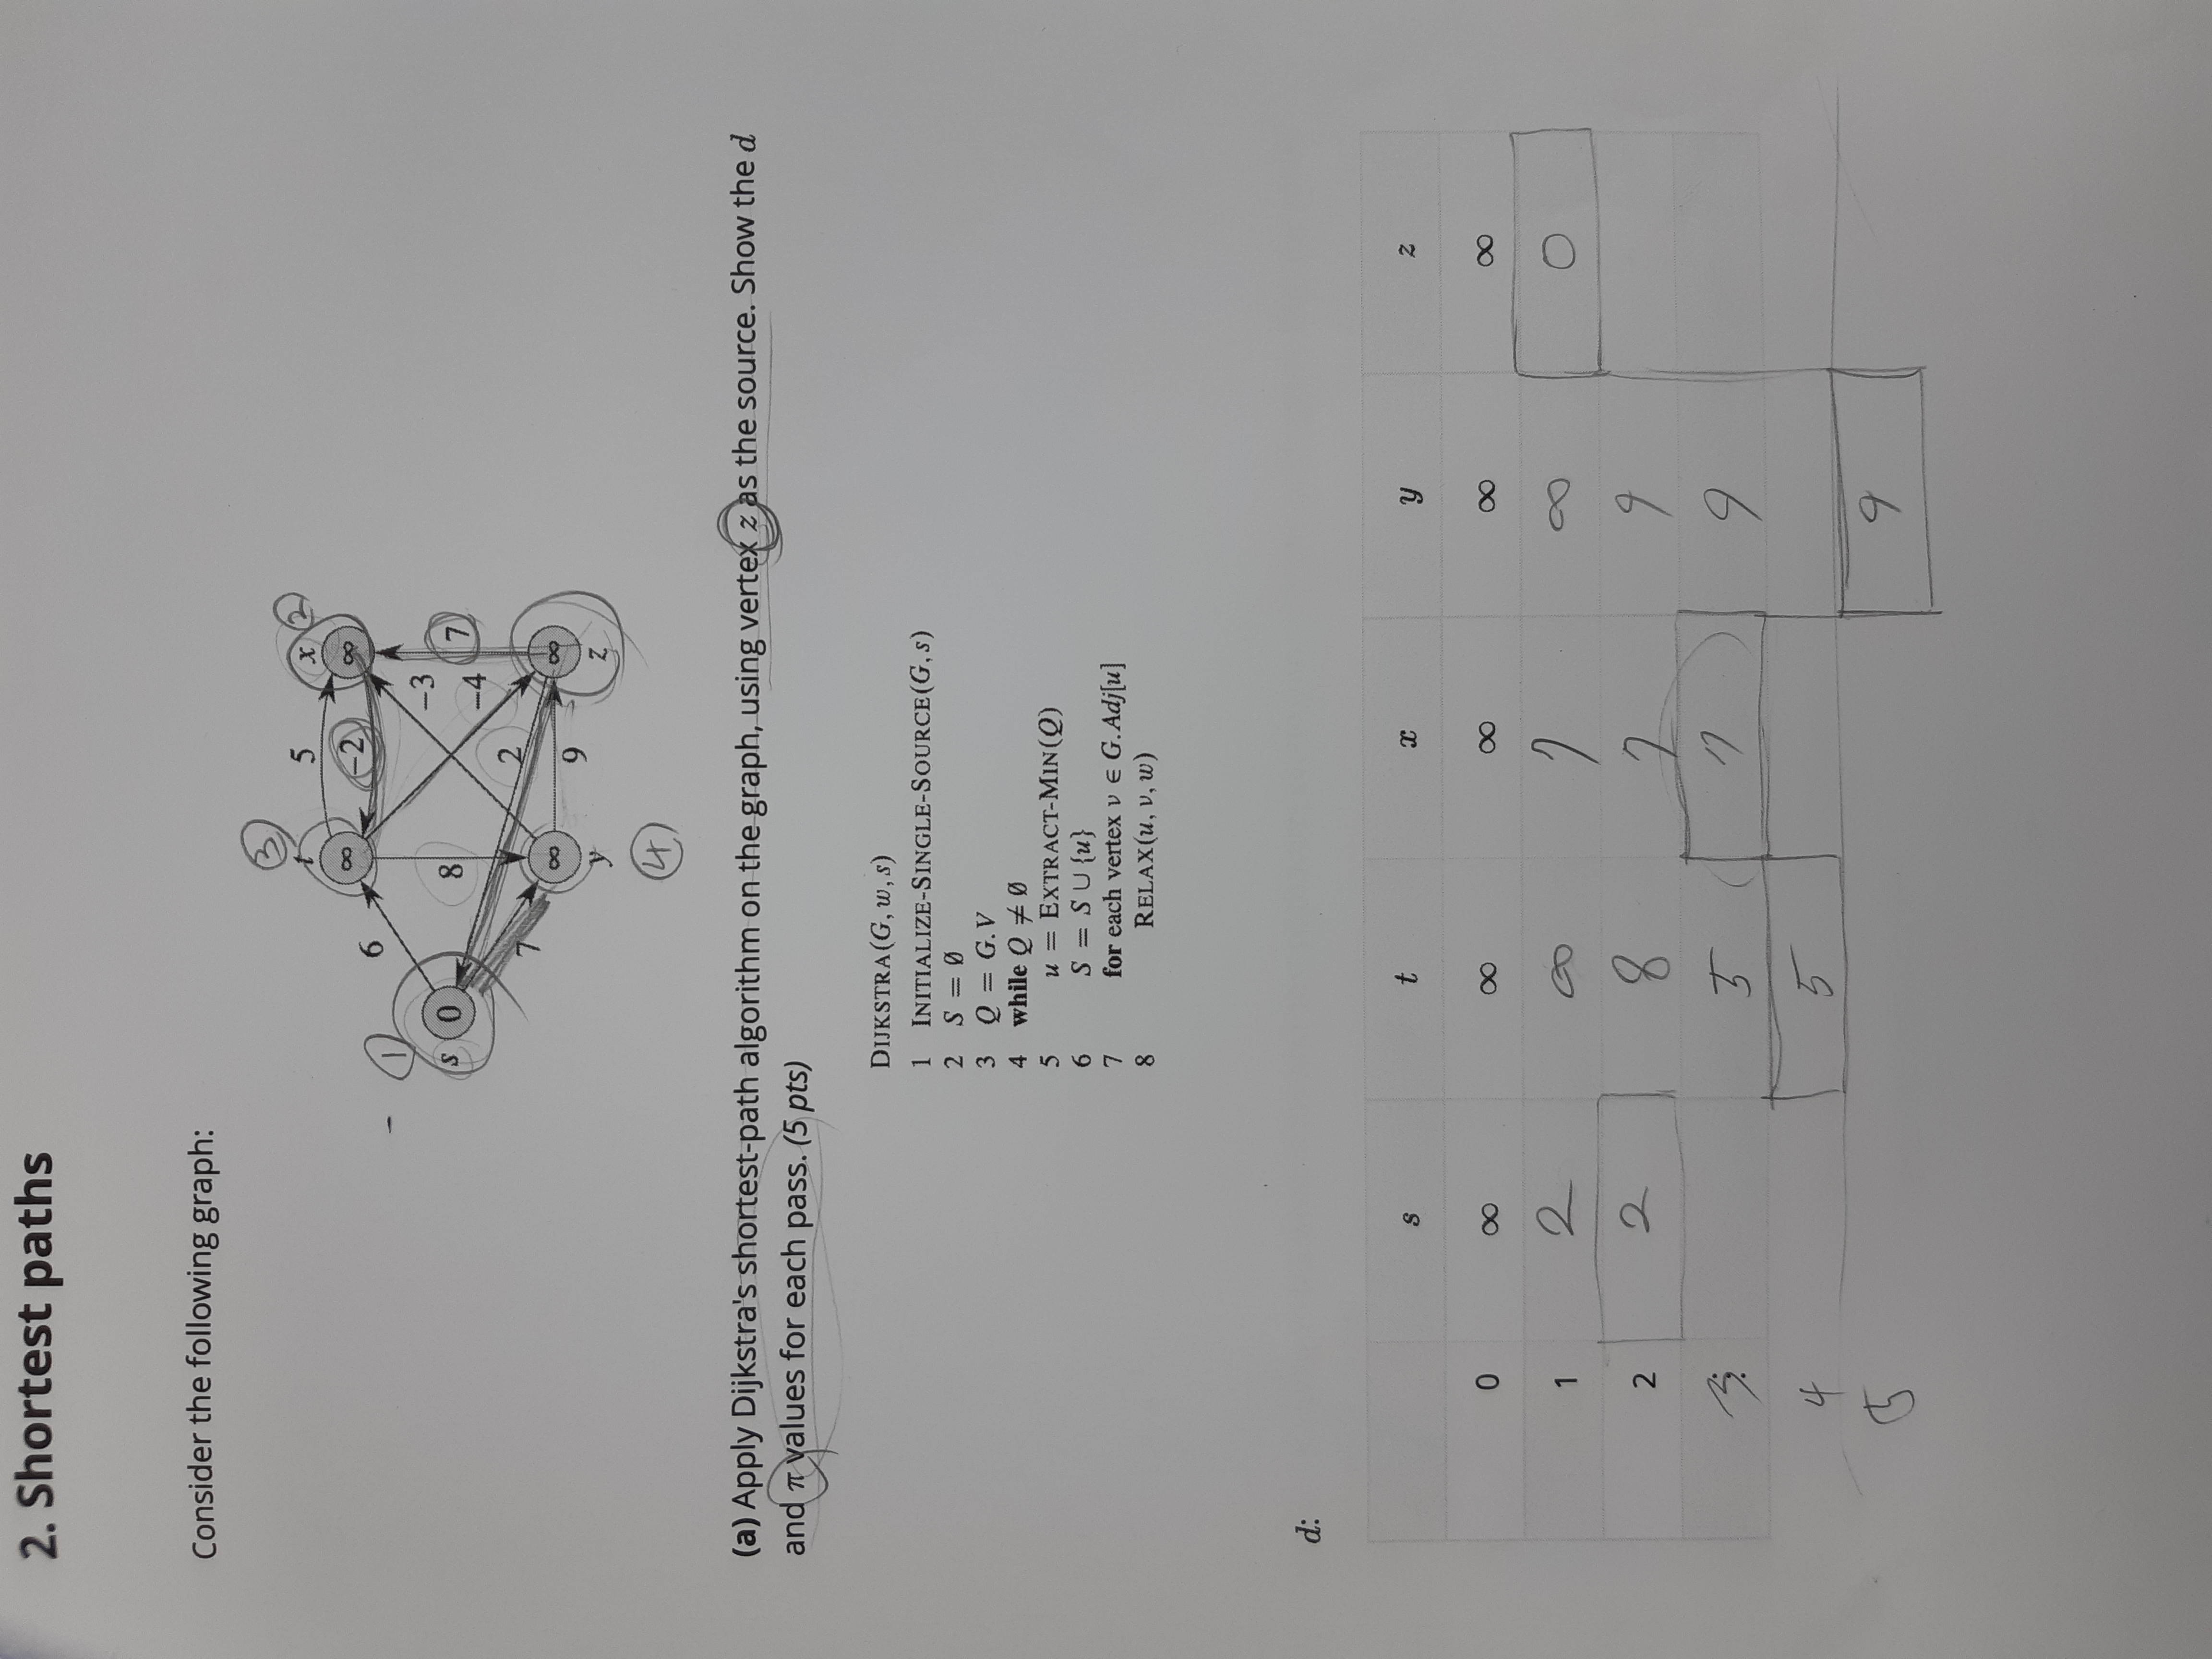 2. Shortest paths
Consider the following graph:
3
t 5 x 2
∞ -2 ∞
6
1
s 0 8 -3 7
-4
7 2
∞ 9 ∞
y z
4
(a) Apply Dijkstra's shortest-path algorithm on the graph, using vertex z as the source. Show the d
and π values for each pass. (5 pts)
DIJKSTRA(G, w, s)
1 INITIALIZE-SINGLE-SOURCE(G, s)
2 S = ∅
3 Q = G.V
4 while Q ≠ ∅
5 u = EXTRACT-MIN(Q)
6 S = S ∪ {u}
7 for each vertex v ∈ G.Adj[u]
8 RELAX(u, v, w)
d:
s t x y z
0 ∞ ∞ ∞ ∞ ∞
1 2 ∞ 7 ∞ 0
2 2 8 7 9
3 5 7 9
4 5
5 9